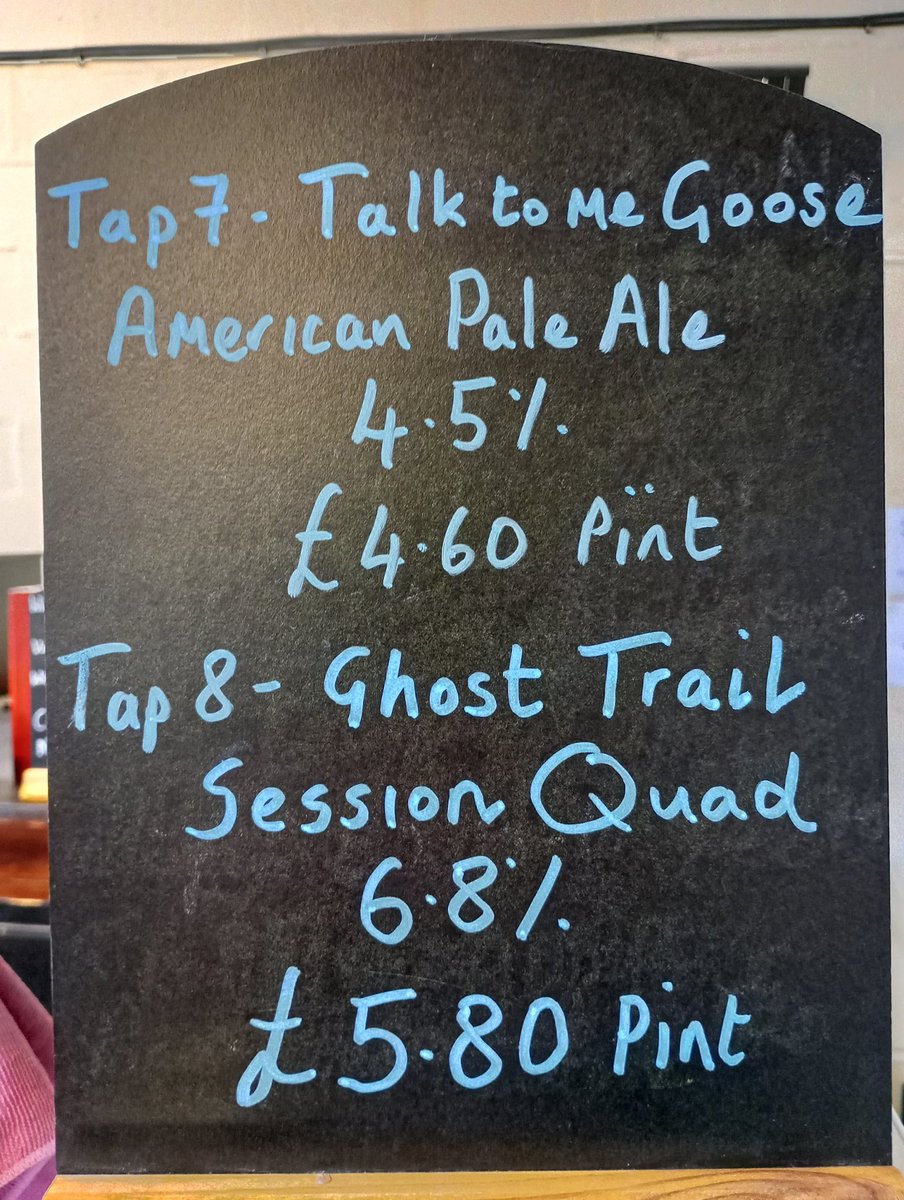 Tap 7 - Talk to Me Goose
American Pale Ale
4.5%
£4.60 Pint
Tap 8 - Ghost Trail
Session Quad
6.8%
£5.80 Pint